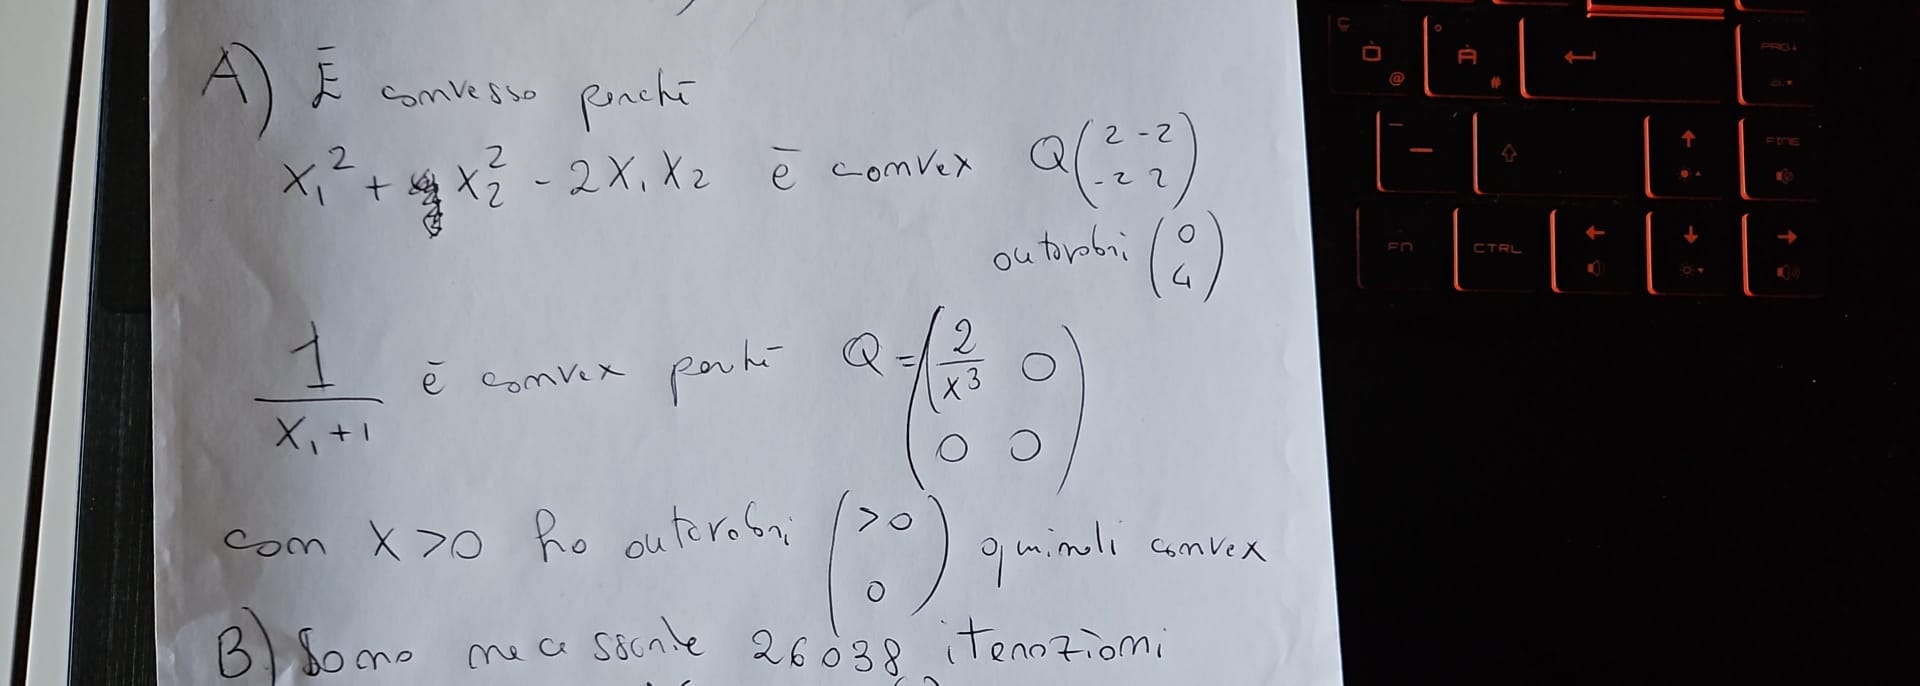 A) È convesso perché
x₁² + x₂² - 2x₁x₂ è convex Q(2 -2
-2 2)
autovalori (0
4)
1
x₁+1
è convex perché Q = (2/x³ 0
0 0)
con x>0 ho autovalori (>0
0) quindi convex
B) Sono necessarie 26038 iterazioni
ç
ò @
° à #
PAG↓
-
FINE
FN
CTRL